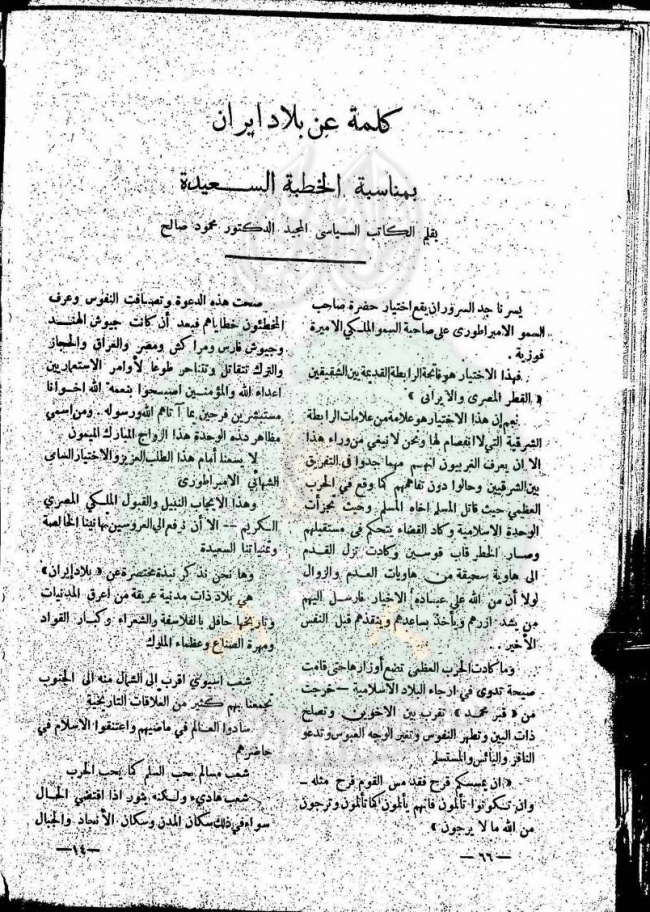 كلمة عن بلاد ايران
بمناسبة الخطبة السعيدة
بقلم الكاتب السياسى المجيد الدكتور محمود صالح
يسرنا جد السرور ان يقع اختيار حضرة صاحب
السمو الامبراطورى على صاحبة السمو الملكى الاميرة
فوزية .
فهذا الاختيار هو فاتحة الرابطة القديمة بين الشقيقين
« القطر المصرى والايرانى »
نعم إن هذا الاختيار هو علامة من علامات الرابطة
الشرقية التى لا انفصام لها ونحن لا نبغى من وراء هذا
الا ان يعرف الغربيون انهم مهما جدوا فى التفريق
بين الشرقيين وحالوا دون تفاهمهم كما وقع فى الحرب
العظمى حيث قاتل المسلم اخاه المسلم وحيث تجزأت
الوحدة الاسلامية وكاد القضاء يتحكم فى مستقبلهم
وصار الخطر قاب قوسين وكادت تزل القدم
الى هاوية سحيقة من هاويات العدم والزوال
لولا أن من الله على عباده الاخيار فارسل اليهم
من يشد ازرهم ويأخذ بساعدهم وينقذهم قبل النفس
الأخير .
وما كادت الحرب العظمى تضع أوزارها حتى قامت
صيحة تدوى فى ارجاء البلاد الاسلامية – خرجت
من « قبر محمد » تقرب بين الاخوين وتصلح
ذات البين وتطهر النفوس وتغير الوجه العبوس وتدعو
النافر واليائس والمستسلم
« ان يمسسكم قرح فقد مس القوم قرح مثله –
وان تكونوا تألمون فانهم يألمون كما تألمون وترجون
من الله ما لا يرجون »
— ٦٦ —
صحت هذه الدعوة وتصافت النفوس وعرف
المخطئون خطاياهم فبعد أن كانت جيوش الهند
وجيوش فارس ومراكش ومصر والعراق والحجاز
والترك تتقاتل وتتناحر طوعا لأوامر الاستعماريين
اعداء الله والمؤمنين اصبحوا بنعمة الله اخوانا
مستبشرين فرحين بما آتاهم الله ورسوله . ومن اسمى
مظاهر هذه الوحدة هذا الزواج المبارك الميمون
لا يسعنا أمام هذا الطلب العزيز والاختيار السامى
الشهانى الامبراطورى
وهذا الايجاب النبيل والقبول الملكى المصرى
الكريم — الا أن نرفع الى العروسين تهانينا الخالصة
وتمنياتنا السعيدة
وها نحن نذكر نبذة مختصرة عن « بلاد إيران »
هى بلاد ذات مدنية عريقة من أعرق المدنيات
وتاريخها حافل بالفلاسفة والشعراء وكبار القواد
ومهرة الصناع وعظماء الملوك
شعب اسيوى اقرب الى الشمال منه الى الجنوب
تجمعنا بهم كثير من العلاقات التاريخية
سادوا العالم فى ماضيهم واعتنقوا الاسلام فى
حاضرهم
شعب مسالم يحب السلم كما يحب الحرب
شعب هادىء ولكنه يثور اذا اقتضى الحال
سواء فى ذلك سكان المدن وسكان الأنجاد والجبال
— ١٤ —